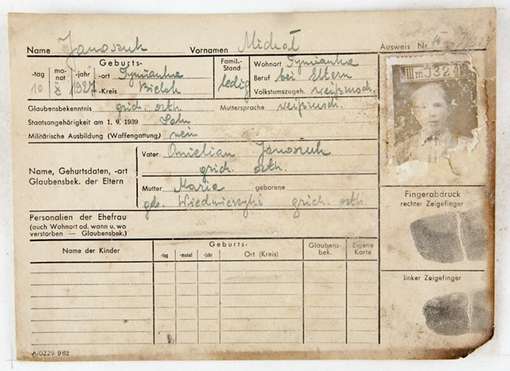 Name Janoszuk Vornamen Michał Ausweis Nr.
Geburts-
-tag mo-nat -jahr -ort -Kreis
10 1927 Bielsk
Famil.-Stand ledig
Wohnort
Beruf bei Eltern
Volkstumszugeh. weißrussch.
Glaubensbekenntnis grich. orth. Muttersprache weißrussch.
Staatsangehörigkeit am 1. 9. 1939
Militärische Ausbildung (Waffengattung) nein
Name, Gehurtsdaten, -ort
Glaubensbek. der Eltern
Vater: Omielian Janoszuk
grich. orth.
Mutter: Maria geborene
geb. grich. orth.
Personalien der Ehefrau
(auch Wohnort od. wann u. wo
verstorben — Glaubensbek.)
Name der Kinder
Geburts-
-tag -monat -jahr Ort (Kreis)
Glaubens-
bek.
Eigene
Karte
Fingerabdruck
rechter Zeigefinger
linker Zeigefinger